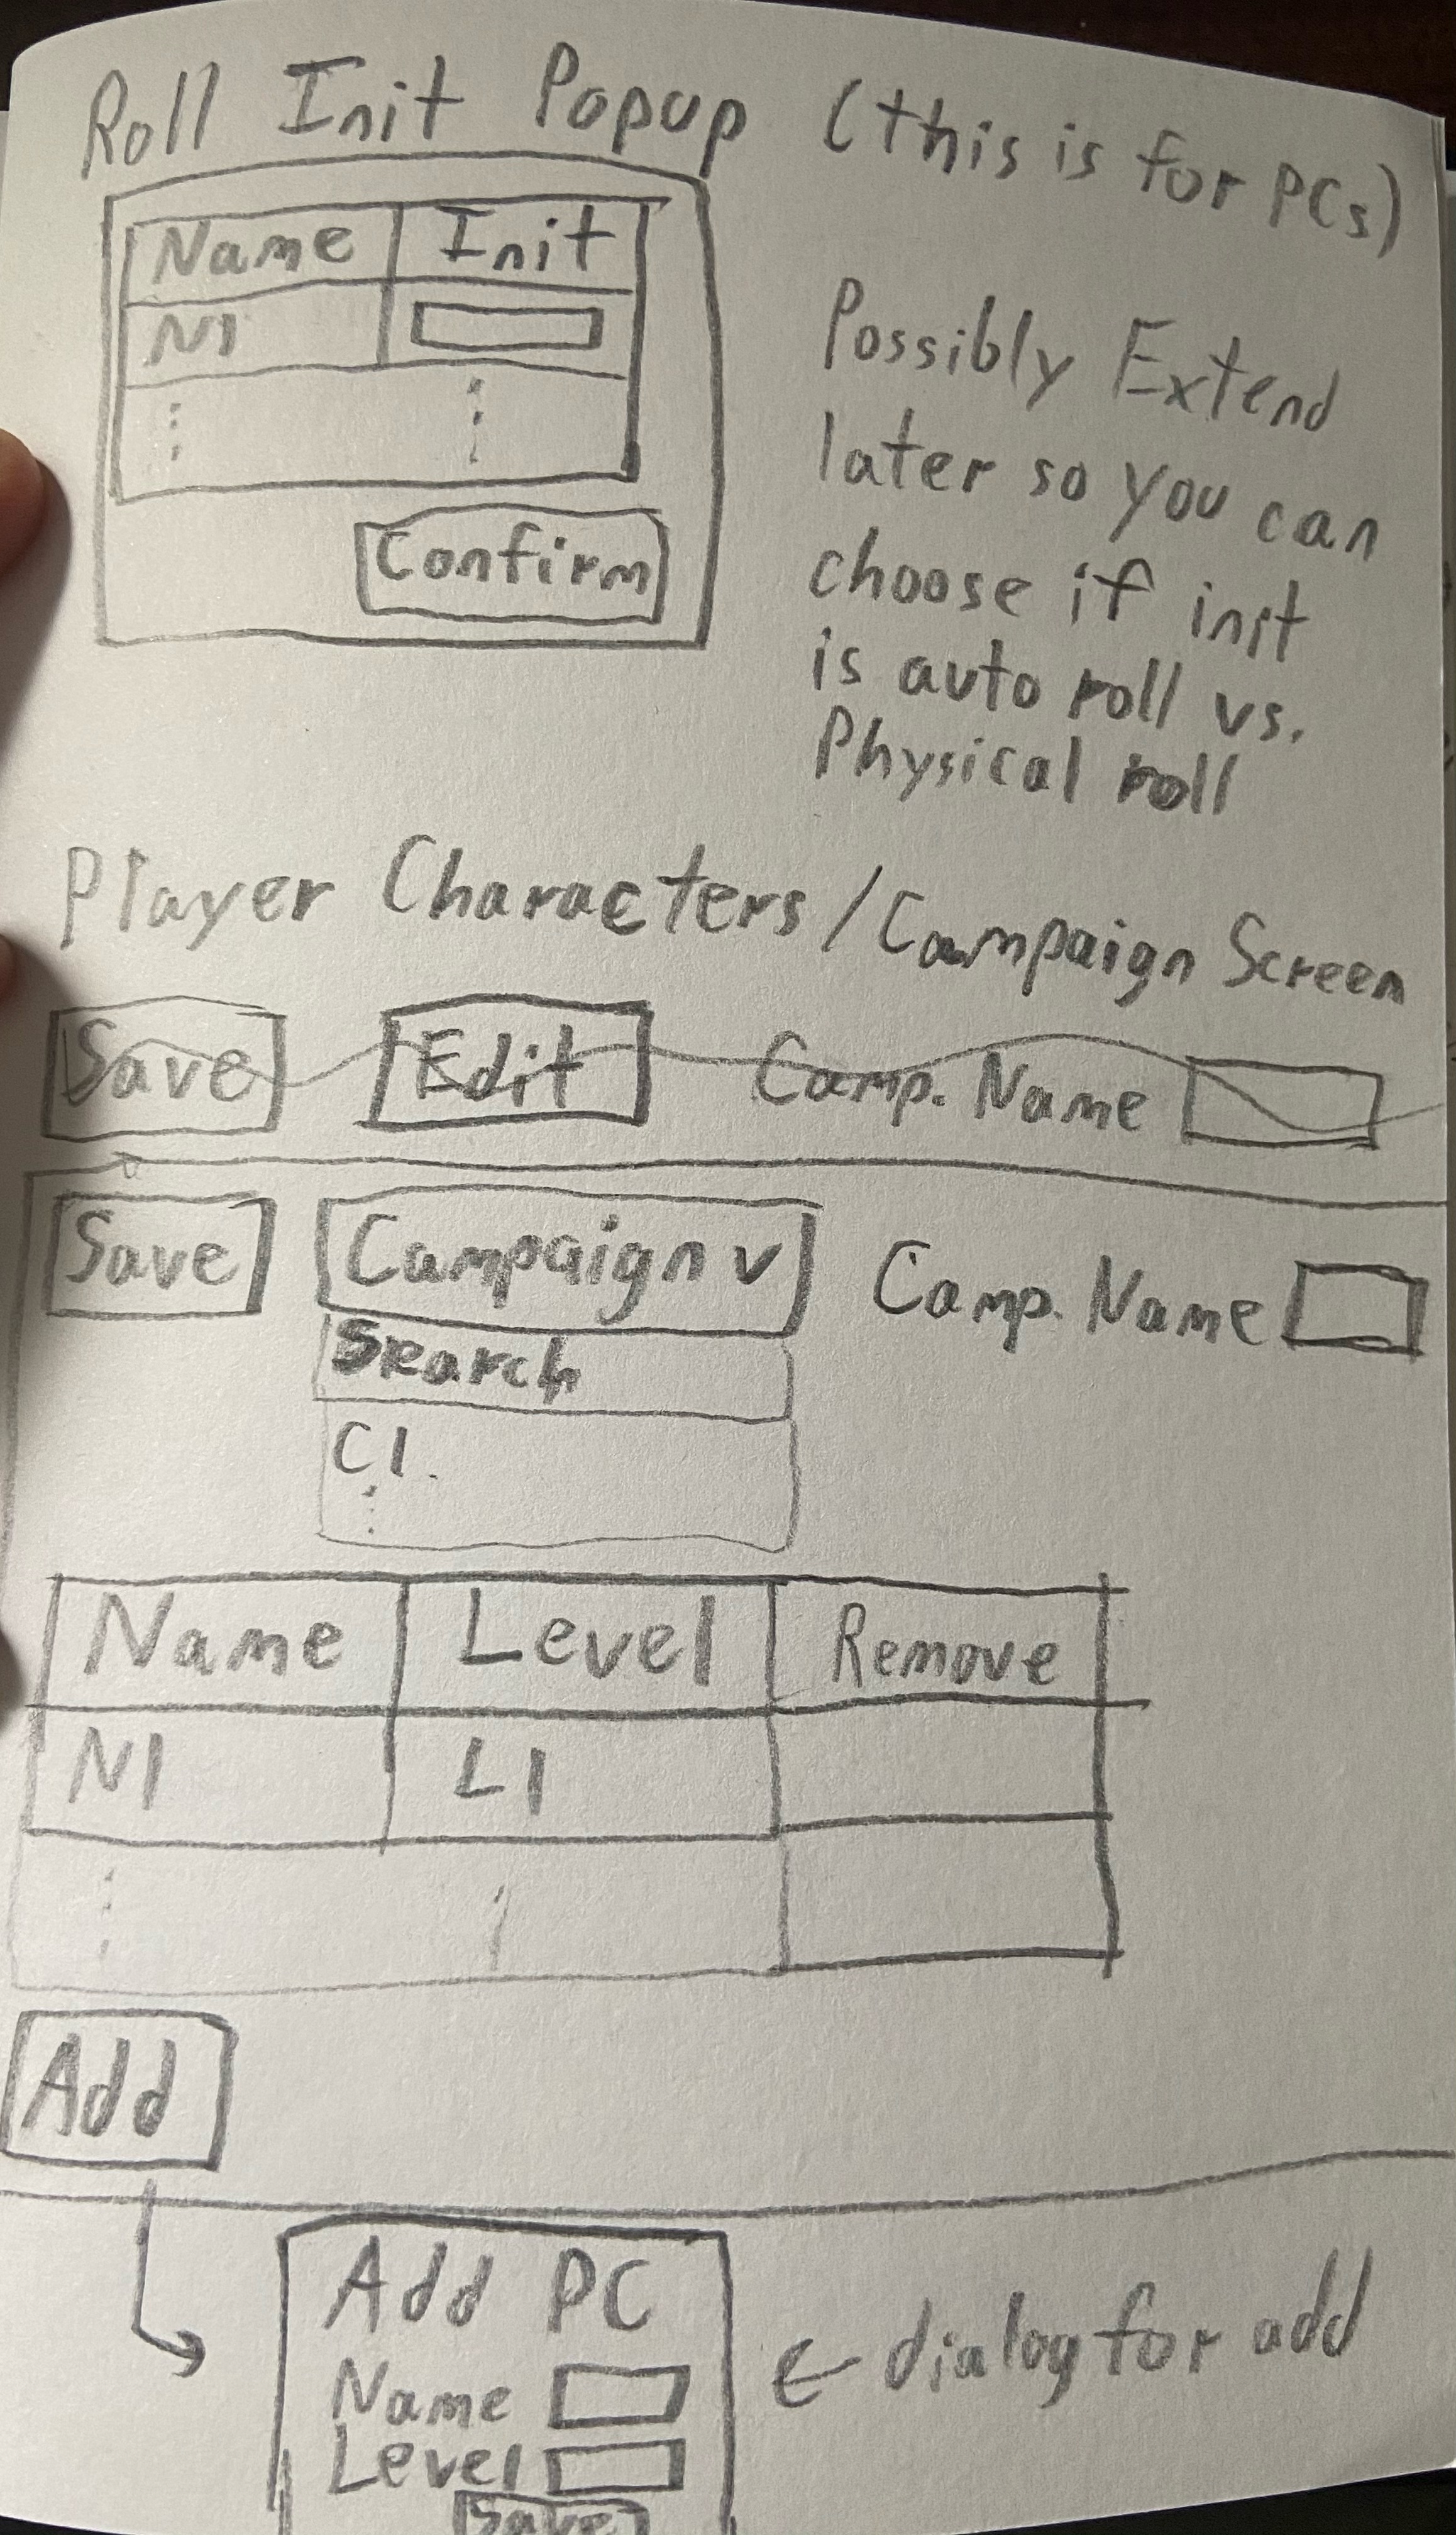 Roll Init Popup (this is for PCs)
Name Init
N1
Confirm
Possibly Extend
later so you can
choose if init
is auto roll vs.
Physical roll
Player Characters / Campaign Screen
Save Edit Camp. Name
Save Campaign v Camp. Name
Search
C1
Name Level Remove
N1 L1
Add
Add PC
Name
Level
Save
← dialog for add